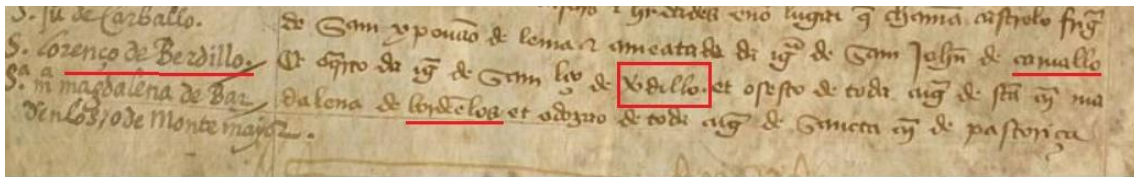 S. Ju de Carballo.
S. Lorenço de Berdillo.
S.ª m magdalena de Bar
denlos, o de Montemayor.
herdades eno lugar q chama castrelo frig
de Sam xpouao de lema et ameatade da ig de Sam John de caruallo
Et o qrto da ig de Sam lço de vdillo. et o sesto de toda a ig de sta m ma
dalena de bordelos et o dozauo de toda a ig de Sancta m de pastoriça